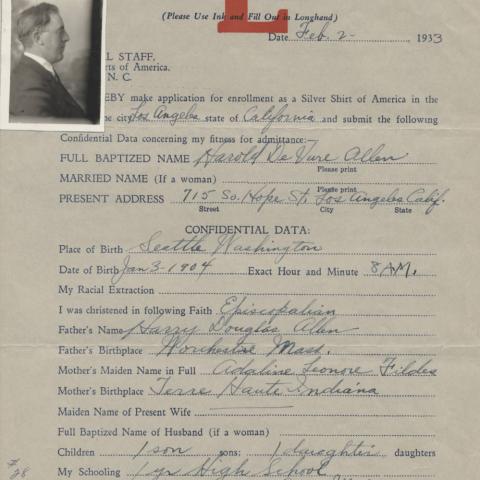 (Please Use Ink and Fill Out in Longhand)
Date Feb. 2- 1933
L STAFF,
rts of America.
N. C.
EBY make application for enrollment as a Silver Shirt of America in the
the city Los Angeles state of California and submit the following
Confidential Data concerning my fitness for admittance:
FULL BAPTIZED NAME Harold De Vure Allen
Please print
MARRIED NAME (If a woman)
Please print
PRESENT ADDRESS 715 So. Hope St. Los Angeles Calif.
Street City State
CONFIDENTIAL DATA:
Place of Birth Seattle Washington
Date of Birth Jan 3-1904 Exact Hour and Minute 8 AM.
My Racial Extraction
I was christened in following Faith Episcopalian
Father's Name Harry Douglas Allen
Father's Birthplace Worchestre Mass.
Mother's Maiden Name in Full Adaline Leonore Fildes
Mother's Birthplace Terre Haute Indiana
Maiden Name of Present Wife
Full Baptized Name of Husband (if a woman)
Children 1 son sons; 1 daughter daughters
My Schooling 1 yr High School